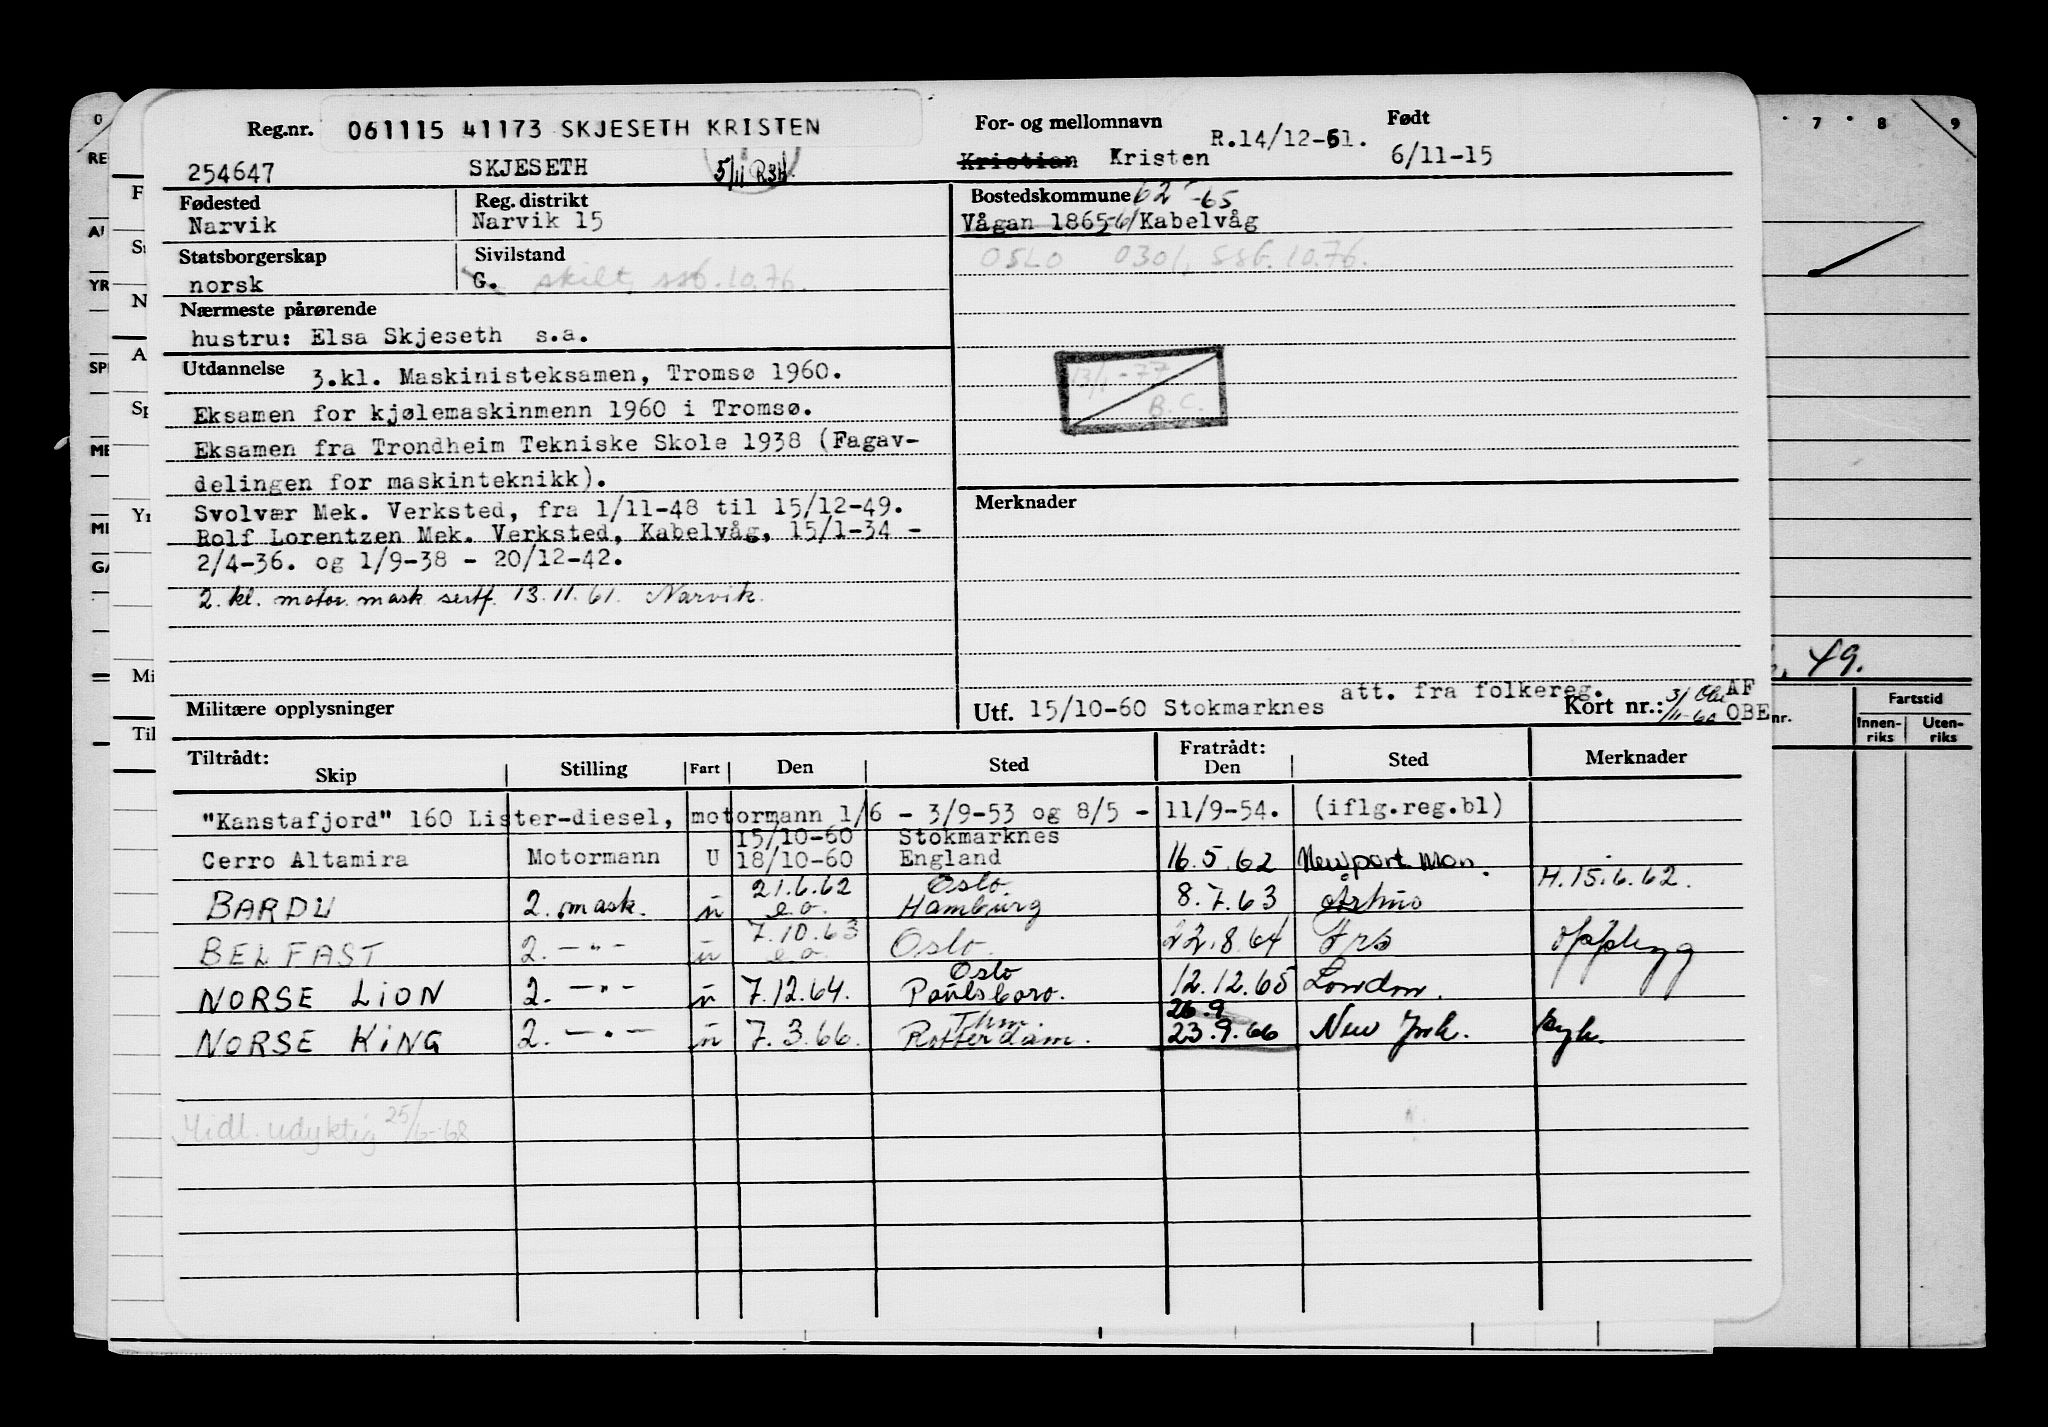 Reg.nr. 061115 41173 SKJESETH KRISTEN
254647 SKJESETH
For- og mellomnavn Født
Kristian Kristen R.14/12-61. 6/11-15
Fødested Reg. distrikt
Narvik Narvik 15
Statsborgerskap Sivilstand
norsk G. skilt ssb. 10.76.
Nærmeste pårørende
hustru: Elsa Skjeseth s.a.
Utdannelse 3.kl. Maskinisteksamen, Tromsø 1960.
Eksamen for kjølemaskinmenn 1960 i Tromsø.
Eksamen fra Trondheim Tekniske Skole 1938 (Fagav-
delingen for maskinteknikk).
Svolvær Mek. Verksted, fra 1/11-48 til 15/12-49.
Rolf Lorentzen Mek. Verksted, Kabelvåg, 15/1-34 -
2/4-36. og 1/9-38 - 20/12-42.
2. kl. motor. mask sertf. 13.11.61. Narvik.
Militære opplysninger
Bostedskommune 62 -65
Vågan 1865-61 Kabelvåg
OSLO 0301, SSB. 10.76.
13/1-77
B.C.
Merknader
att. fra folkereg.
Utf. 15/10-60 Stokmarknes Kort nr.: AF
OBE
Tiltrådt: Fratrådt:
Skip Stilling Fart Den Sted Den Sted Merknader
"Kanstafjord" 160 Lister-diesel, motormann 1/6 - 3/9-53 og 8/5 - 11/9-54. (iflg.reg.bl)
15/10-60 Stokmarknes
Cerro Altamira Motormann U 18/10-60 England 16.5.62 Newport Mon. H.15.6.62.
21.6.62 Oslo.
BARDU 2. mask. u e.o. Hamburg 8.7.63 Århus
7.10.63
BELFAST 2. -"- u e.o. Oslo. 22.8.64 Frs opplegg
Oslo
NORSE LION 2. -"- u 7.12.64. Paulsboro. 12.12.65 London.
Thm. 26.9
NORSE KING 2. -"- u 7.3.66. Rotterdam. 23.9.66 New York. syk.
Midl. udyktig 25/6-68
7 8 9
49.
nr. Fartstid
Innen-
riks
Uten-
riks